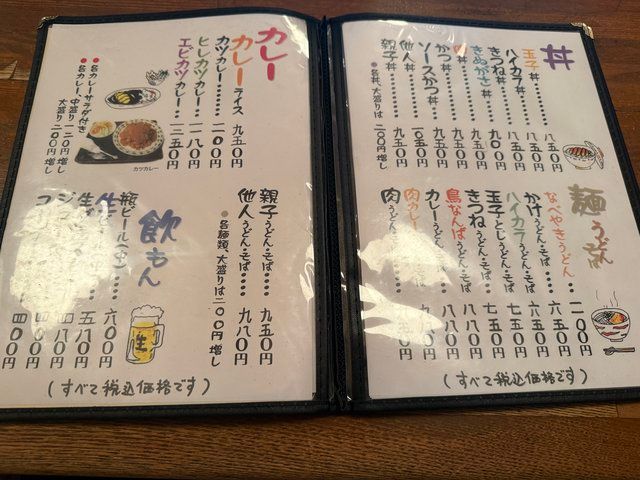 丼
玉子丼 八五〇円
ハイカラ丼 八五〇円
きつね丼 九〇〇円
きぬがさ丼 九五〇円
丼 九五〇円
かつ丼 九五〇円
ソースかつ丼 九五〇円
他人丼 一〇五〇円
親子丼 九五〇円
●各丼、大盛りは二〇〇円増し
麺 うどん
なべやきうどん 一二〇〇円
かけうどん・そば 六五〇円
ハイカラうどん・そば 七五〇円
玉子とじうどん・そば 七五〇円
きつねうどん・そば 八〇円
鳥なんばうどん・そば 八八〇円
カレーうどん・そば 九
肉カレー
肉うどん 五〇円
親子うどん・そば 九五〇円
他人うどん・そば 九八〇円
●各麺類、大盛りは二〇〇円増し
(すべて税込価格です)
カレー
カレーライス 九五〇円
カツカレー 一二〇〇円
ヒレカツカレー 一二八〇円
エビカツカレー 一三五〇円
●各カレーサラダ付き
●各カレー、中盛り一二〇円増し
大盛り二〇〇円増し
カツカレー
飲もん
瓶ビール(中) 六〇〇円
生 五八〇円
四八〇円
四〇〇円
四〇〇円
生
(すべて税込価格です)